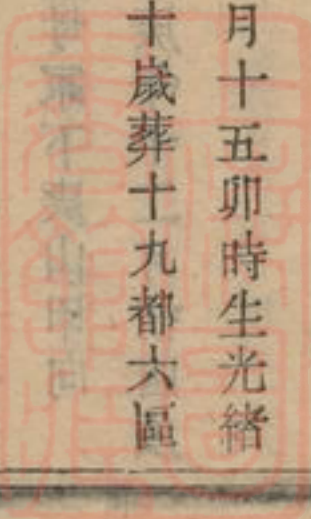 月十五卯時生光緒
十歲葬十九都六區